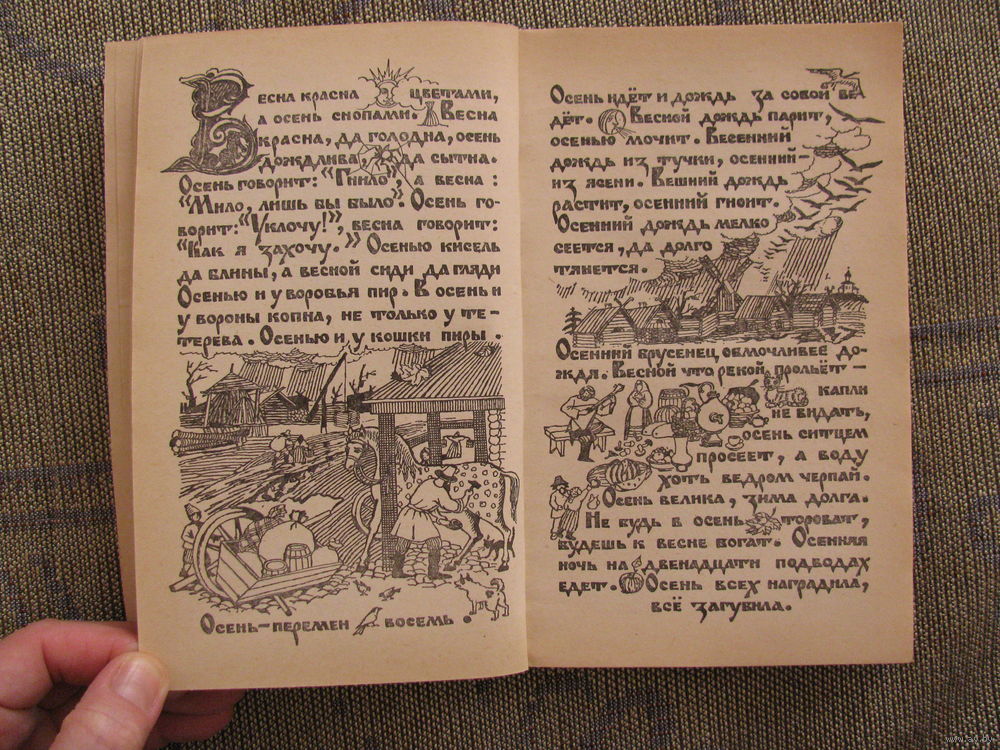 Весна красна цветами,
а осень снопами. Весна
красна, да голодна, осень
дождлива, да сыта.
Осень говорит: "Гнило", а весна:
"Мило, лишь бы было". Осень го-
ворит: "Уклочу!", весна говорит:
"Как я захочу." Осенью кисель
да блины, а весной сиди да гляди
Осенью и у воробья пир. В осень и
у вороны копна, не только у те-
терева. Осенью и у кошки пиры.
Осень-перемен восемь.
Осень идёт и дождь за собой ве
дёт. Весной дождь парит,
осенью мочит. Весенний
дождь из тучки, осенний-
из ясени. Вешний дождь
растит, осенний гноит.
Осенний дождь мелко
сеется, да долго
тянется.
Осенний брусенец обмочливее до-
ждя. Весной что рекой прольёт-
капли
не видать,
осень ситцем
просеет, а воду
хоть ведром черпай.
Осень велика, зима долга.
Не будь в осень тороват,
будешь к весне богат. Осенняя
ночь на двенадцати подводах
едет. Осень всех наградила,
всё загубила.
www.ay.by